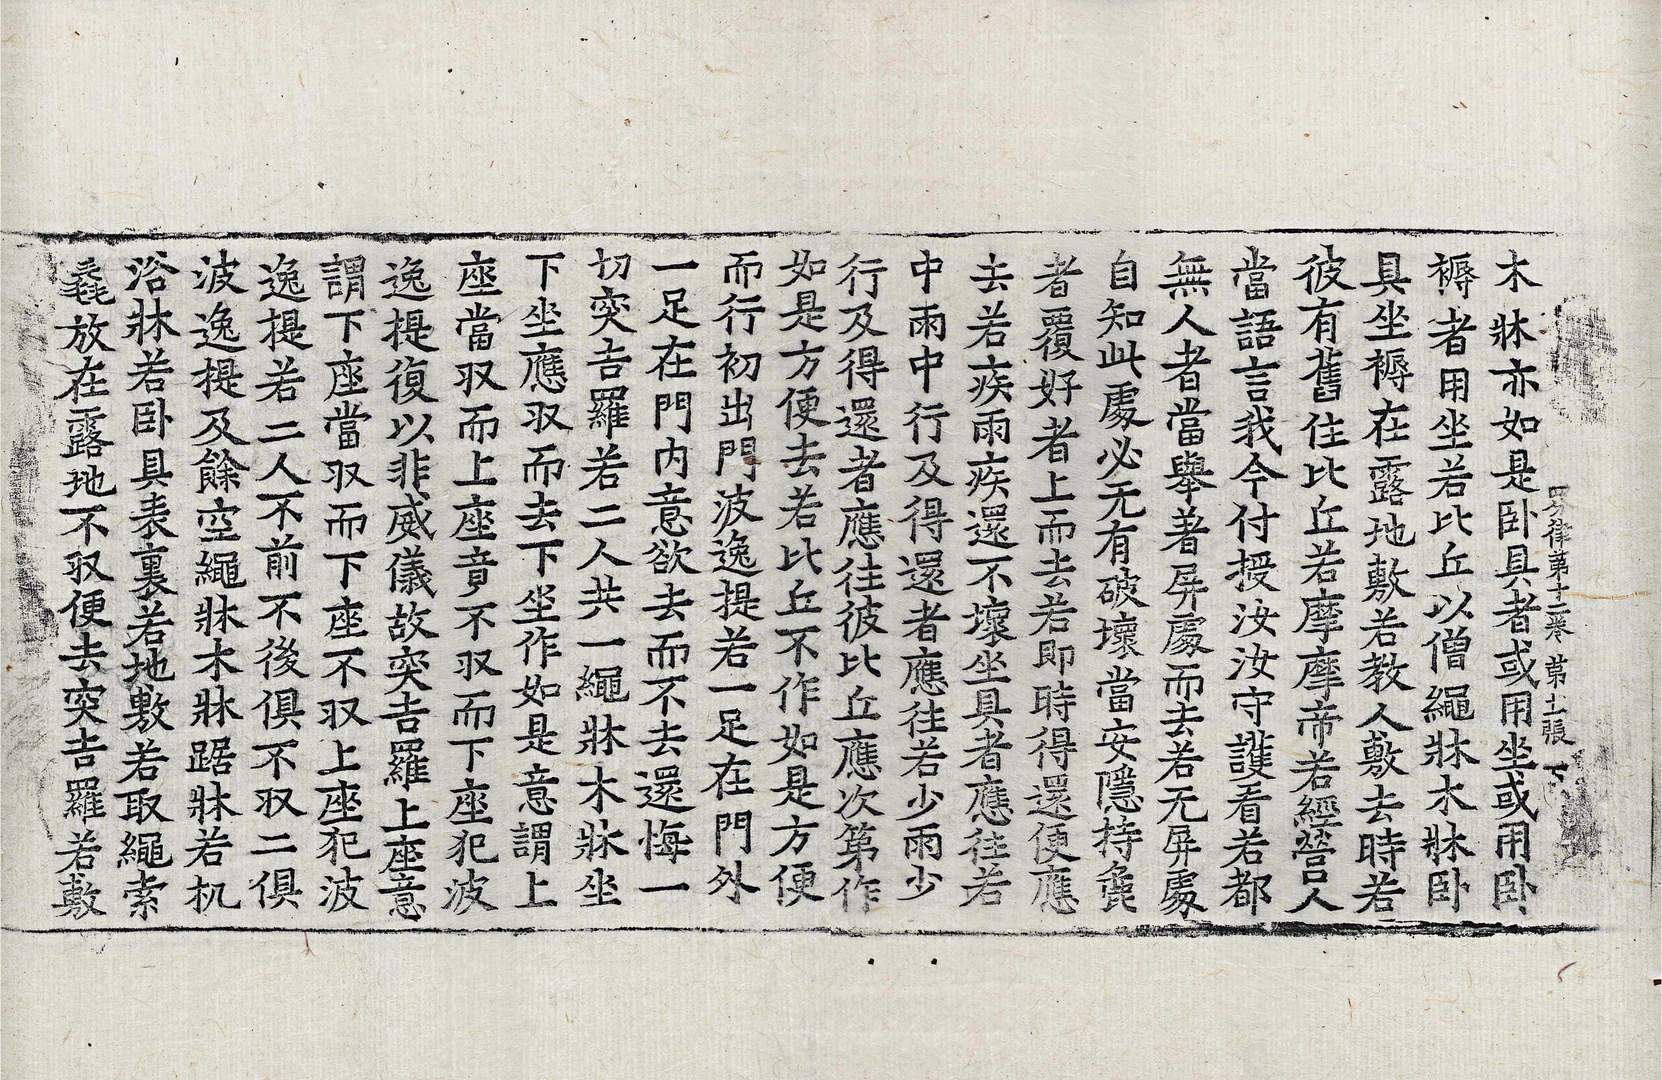 四分律第十二卷 第十一張 下
木牀亦如是卧具者或用坐或用卧
褥者用坐若比丘以僧繩牀木牀卧
具坐褥在露地敷若教人敷去時若
彼有舊住比丘若摩摩帝若經營人
當語言我今付授汝汝守護看若都
無人者當舉著屏處而去若无屏處
自知此處必无有破壞當安隱持麁
者覆好者上而去若即時得還便應
去若疾雨疾還不壞坐具者應往若
中雨中行及得還者應往若少雨少
行及得還者應往彼比丘應次第作
如是方便去若比丘不作如是方便
而行初出門波逸提若一足在門外
一足在門内意欲去而不去還悔一
切突吉羅若二人共一繩牀木牀坐
下坐應収而去下坐作如是意謂上
座當収而上座竟不収而下座犯波
逸提復以非威儀故突吉羅上座意
謂下座當収而下座不収上座犯波
逸提若二人不前不後俱不収二俱
波逸提及餘空繩牀木牀踞牀若机
浴牀若卧具表裏若地敷若取繩索
毳放在露地不収便去突吉羅若敷